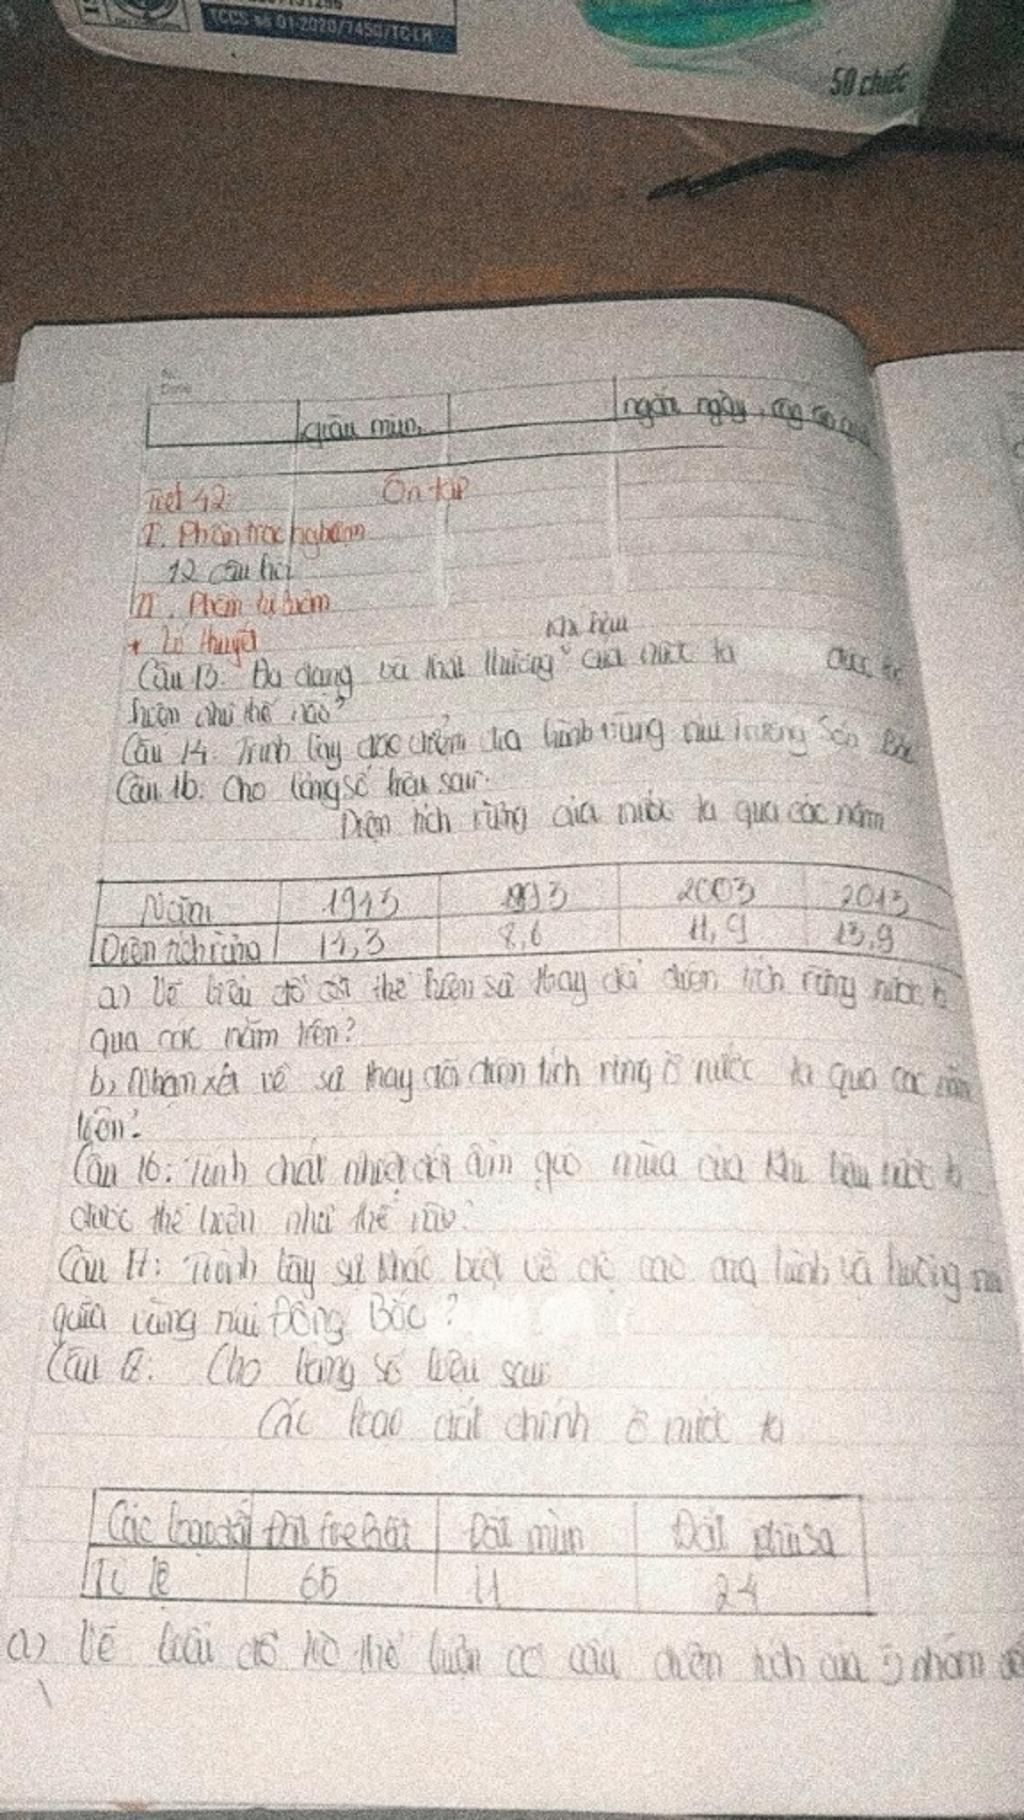 TCCS số 01:2020/7450/TC-LH
50 chiếc
giàu mùn,
ngắn ngày,
Tiết 42: Ôn tập
I. Phần trắc nghiệm
12 câu hỏi
II. Phần tự luận
+ Lí thuyết
khí hậu
Câu 13: Đa dạng và thất thường của nước ta được
hiện như thế nào?
Câu 14: Trình bày đặc điểm địa hình vùng núi Trường Sơn Bắc
Câu 15: Cho bảng số liệu sau:
Diện tích rừng của nước ta qua các năm
Năm 1943 1993 2003 2013
Diện tích rừng 14,3 8,6 11,9 13,9
a) Vẽ biểu đồ cột thể hiện sự thay đổi diện tích rừng nước ta
qua các năm trên?
b) Nhận xét về sự thay đổi diện tích rừng ở nước ta qua các năm
trên?
Câu 16: Tính chất nhiệt đới ẩm gió mùa của khí hậu nước ta
được thể hiện như thế nào?
Câu 17: Trình bày sự khác biệt về độ cao địa hình và hướng núi
giữa vùng núi Đông Bắc?
Câu 18: Cho bảng số liệu sau
Các loại đất chính ở nước ta
Các loại đất Đất feralit Đất mùn Đất phù sa
Tỉ lệ 65 11 24
a) Vẽ biểu đồ thể hiện cơ cấu diện tích của 3 nhóm